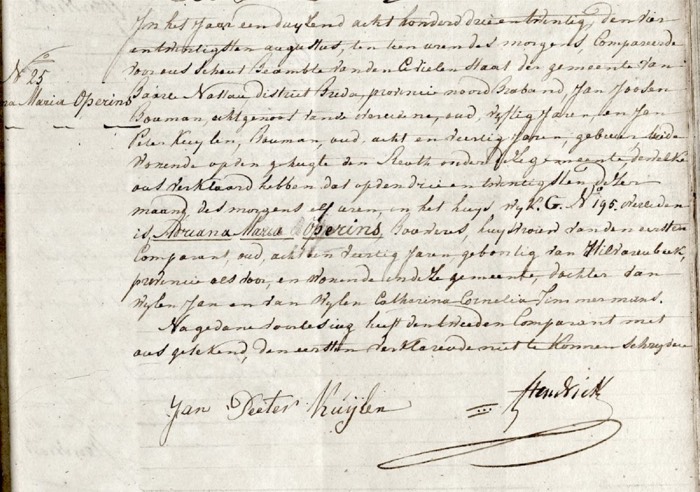 In het Jaar een duyzend acht honderd drie en twintig, den vier
en twintigsten augustus, ten tien uren des morgens, Compareerde
voor ons Schout Beambte van den Civielen Staat der gemeente van
Baarle Nassau district Breda, provincie noord Braband, Jan Joosen
Bouman, echtgenoot van de overledene, oud, vyftig Jaren, en Jan
Peter Kuylen, Bouman, oud, acht en veertig Jaren, gebuur beide
Wonende op den gehugte den Reuth onder deze gemeente, dewelke
ons verklaard hebben dat op den drie en twintigsten dezer
maand des morgens elf uren, in het huys wyk G. No 195. overleden
is, Adriana Maria Operins Bouderes, huysvrouw van den eersten
Comparant, oud, acht en veertig Jaren, geboortig van Hilvarenbeek
provincie als voor, en wonende in deze gemeente, dochter van
wylen Jan en van wylen Catharina Cornelia Timmermans.
Na gedane voorlesing heeft den tweeden Comparant met
ons getekend, den eersten verklarende niet te konnen schryven
No 25
na Maria Operins
Jan Peeter Kuijlen
Hendrick